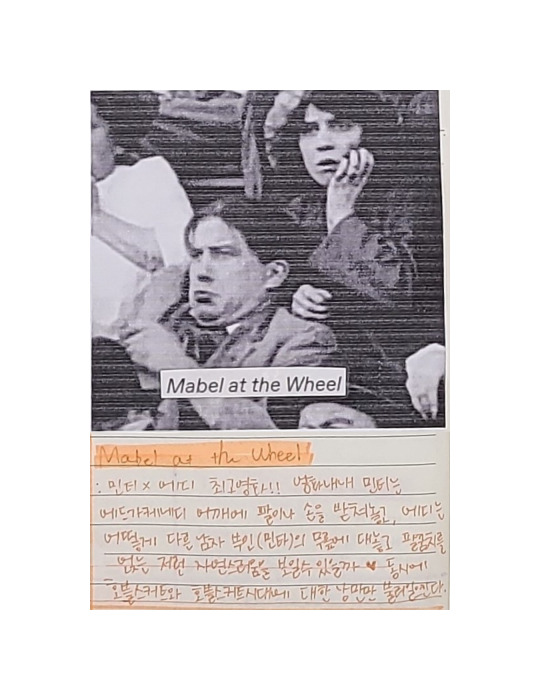 Mabel at the Wheel
Mabel at the Wheel
: 민타 × 에디 최고영화!! 영화내내 민타는
에드가케네디 어깨에 팔이나 손을 받쳐놓고, 에디는
어떻게 다른 남자 부인(민타)의 무릎에 대놓고 팔꿈치를
얹는 저런 자연스러움을 보일 수 있을까 ♥ 동시에
호블스커트와 호블스커트시대에 대한 낭만만 불러일으킨다.